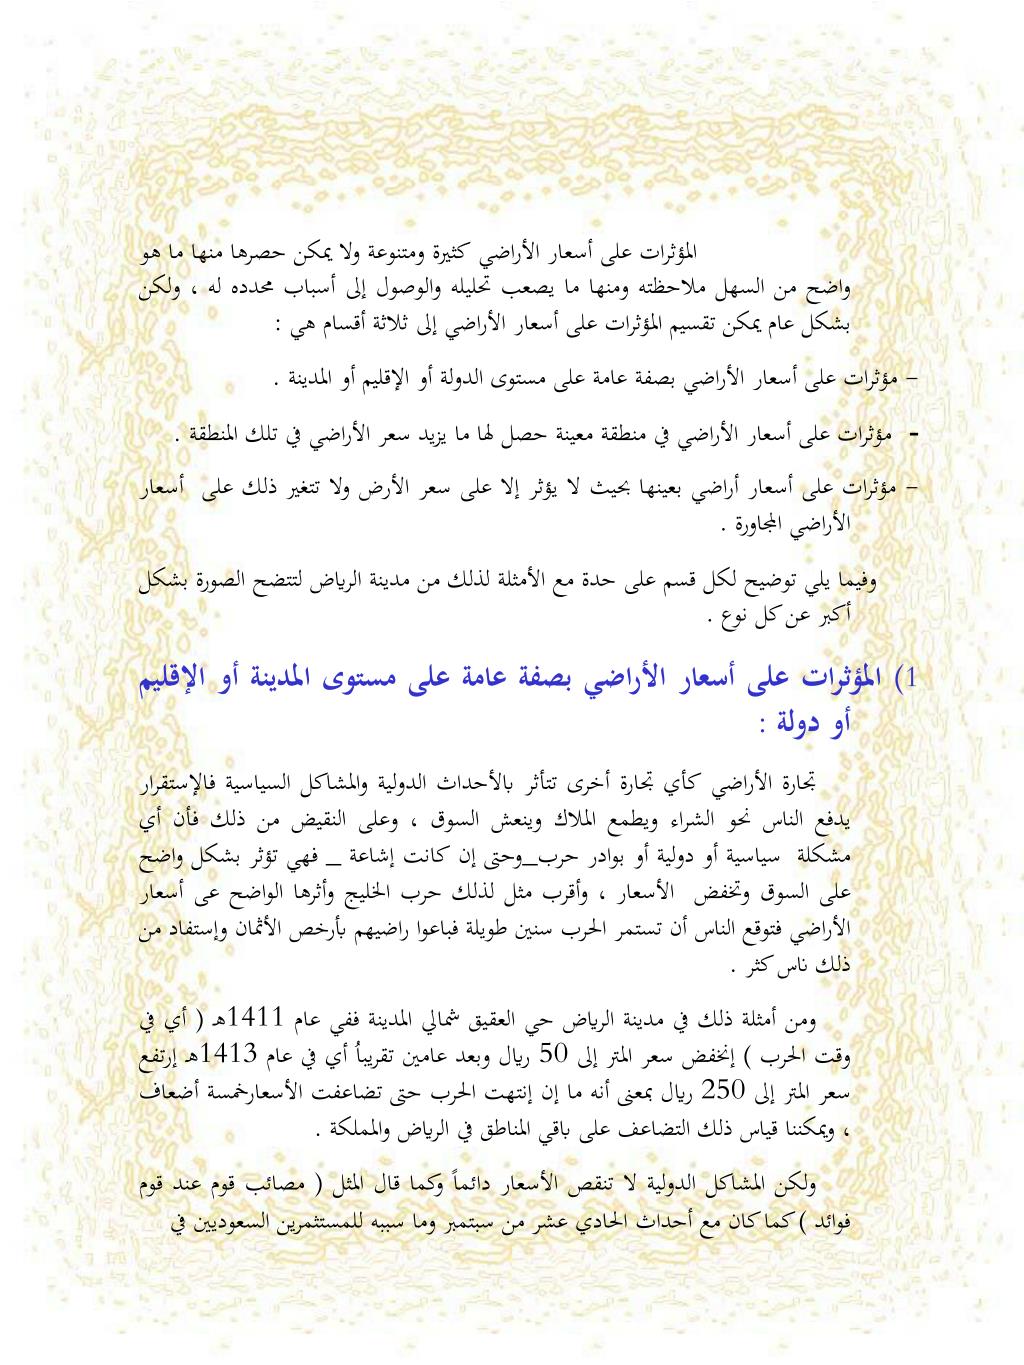 المؤثرات على أسعار الأراضي كثيرة ومتنوعة ولا يمكن حصرها منها ما هو
واضح من السهل ملاحظته ومنها ما يصعب تحليله والوصول إلى أسباب محدده له ، ولكن
بشكل عام يمكن تقسيم المؤثرات على أسعار الأراضي إلى ثلاثة أقسام هي :
– مؤثرات على أسعار الأراضي بصفة عامة على مستوى الدولة أو الإقليم أو المدينة .
- مؤثرات على أسعار الأراضي في منطقة معينة حصل لها ما يزيد سعر الأراضي في تلك المنطقة .
– مؤثرات على أسعار أراضي بعينها بحيث لا يؤثر إلا على سعر الأرض ولا تتغير ذلك على أسعار
الأراضي المجاورة .
وفيما يلي توضيح لكل قسم على حدة مع الأمثلة لذلك من مدينة الرياض لتتضح الصورة بشكل
أكبر عن كل نوع .
1) المؤثرات على أسعار الأراضي بصفة عامة على مستوى المدينة أو الإقليم
أو دولة :
تجارة الأراضي كأي تجارة أخرى تتأثر بالأحداث الدولية والمشاكل السياسية فالإستقرار
يدفع الناس نحو الشراء ويطمع الملاك وينعش السوق ، وعلى النقيض من ذلك فأن أي
مشكلة سياسية أو دولية أو بوادر حرب_وحتى إن كانت إشاعة _ فهي تؤثر بشكل واضح
على السوق وتخفض الأسعار ، وأقرب مثل لذلك حرب الخليج وأثرها الواضح عى أسعار
الأراضي فتوقع الناس أن تستمر الحرب سنين طويلة فباعوا راضيهم بأرخص الأثمان وإستفاد من
ذلك ناس كثر .
ومن أمثلة ذلك في مدينة الرياض حي العقيق شمالي المدينة ففي عام 1411هـ ( أي في
وقت الحرب ) إنخفض سعر المتر إلى 50 ريال وبعد عامين تقريباُ أي في عام 1413هـ إرتفع
سعر المتر إلى 250 ريال بمعنى أنه ما إن إنتهت الحرب حتى تضاعفت الأسعارخمسة أضعاف
، ويمكننا قياس ذلك التضاعف على باقي المناطق في الرياض والمملكة .
ولكن المشاكل الدولية لا تنقص الأسعار دائماً وكما قال المثل ( مصائب قوم عند قوم
فوائد ) كما كان مع أحداث الحادي عشر من سبتمبر وما سببه للمستثمرين السعوديين في